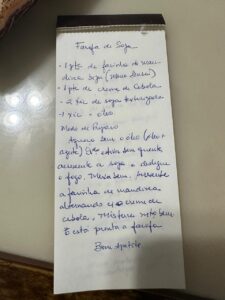 Farofa de Soja
- 1 pte de farinha de man-
dioca Soja
- 1 pte de creme de Cebola
- 2 xic de soja texturizada
- 1 xic - óleo.
Modo de Preparo
Aquece bem o óleo (óleo +
azeite) Qdo estiver bem quente
acrescente a soja e desligue
o fogo. Mexa bem. Acrescente
a farinha de mandioca
alternando c/ o creme de
cebola. Misture muito bem
E está pronta a farofa
Bom Apetite